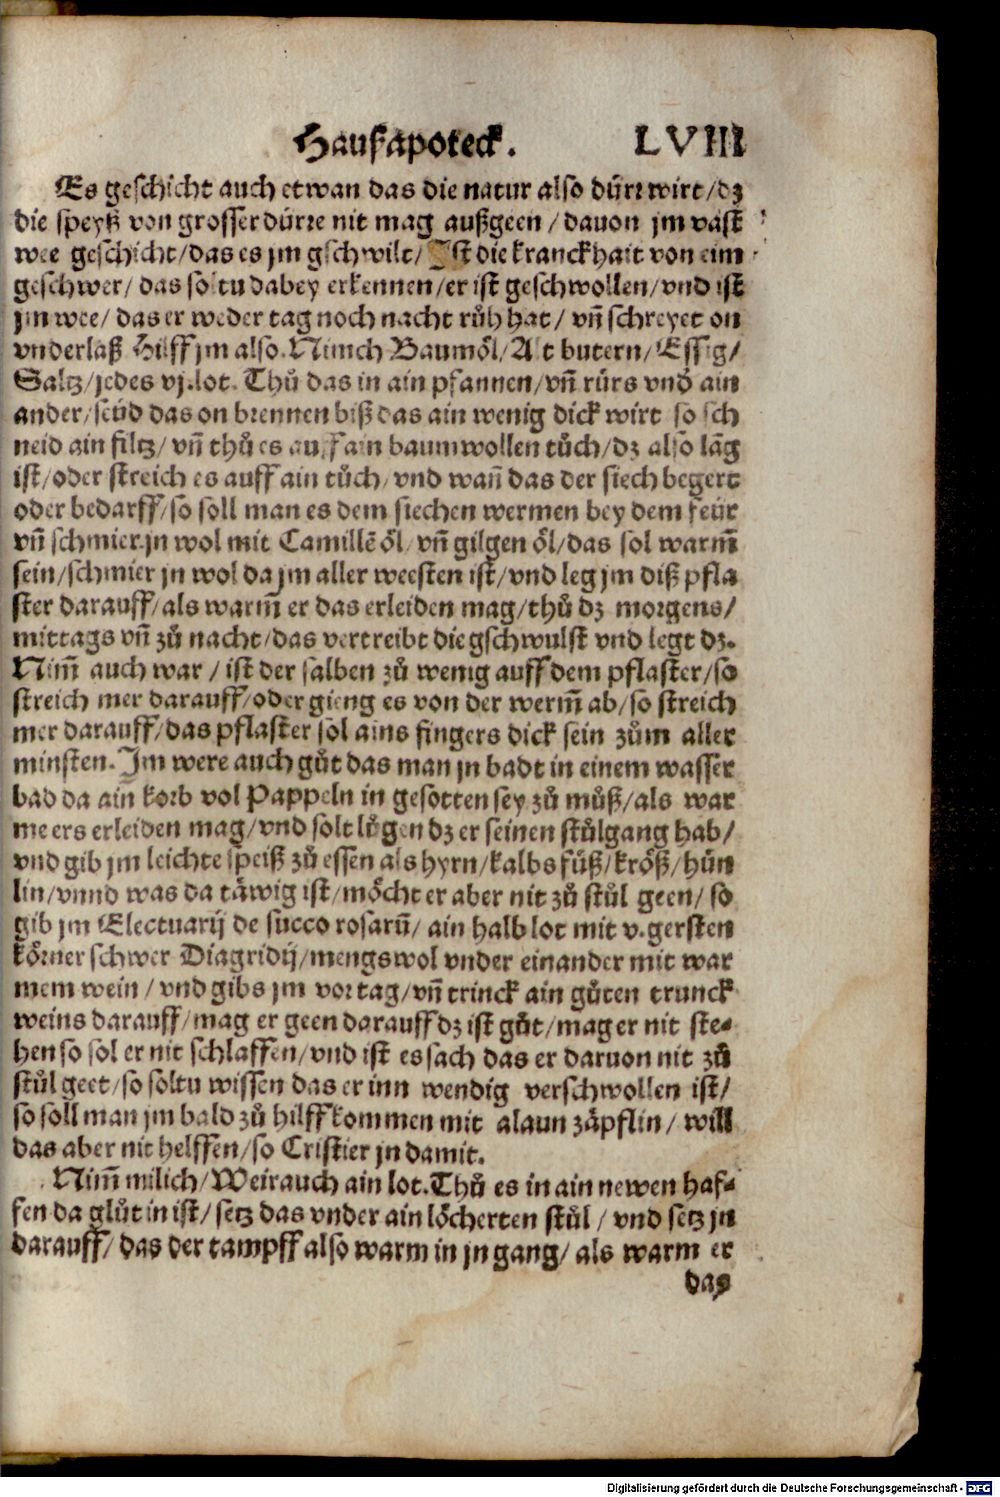 Haußapoteck. LVIII
Es geschicht auch etwan das die natur also dürr wirt/dz
die speyß von grosser dürre nit mag außgeen/dauon jm vast
wee geschicht/das es jm gschwilt/Ist die kranckhait von eim
geschwer/das soltu dabey erkennen/er ist geschwollen/vnd ist
jm wee/das er weder tag noch nacht růh hat/vñ schreyet on
vnderlaß Hilff jm also. Nimch Baumöl/Alt butern/Essig/
Saltz/jedes vj.lot. Thů das in ain pfannen/vñ rürs vnd ain
ander/seüd das on brennen biß das ain wenig dick wirt so sch
neid ain filtz/vñ thů es auff ain baumwollen tůch/dz also lãg
ist/oder streich es auff ain tůch/vnd wañ das der siech begert
oder bedarff/so soll man es dem siechen wermen bey dem feür
vñ schmier jn wol mit Camillẽ öl/vñ gilgen öl/das sol warm̃
sein/schmier jn wol da jm aller weesten ist/vnd leg jm diß pfla
ster darauff/als warm̃ er das erleiden mag/thů dz morgens/
mittags vñ zů nacht/das vertreibt die gschwulst vnd legt dz.
Nim̃ auch war/ist der salben zů wenig auff dem pflaster/so
streich mer darauff/oder gieng es von der werm̃ ab/so streich
mer darauff/das pflaster sol ains fingers dick sein zům aller
minsten. Im were auch gůt das man jn badt in einem wasser
bad da ain korb vol Pappeln in gesotten sey zů můß/als war
me ers erleiden mag/vnd solt lůgen dz er seinen stůlgang hab/
vnd gib jm leichte speiß zů essen als hyrn/kalbs füß/kröß/hün
lin/vnnd was da täwig ist/möcht er aber nit zů stůl geen/so
gib jm Electuarij de succo rosarũ/ain halb lot mit v.gersten
körner schwer Diagridij/mengs wol vnder einander mit war
mem wein/vnd gibs jm vor tag/vñ trinck ain gůten trunck
weins darauff/mag er geen darauff dz ist gůt/mag er nit ste-
hen so sol er nit schlaffen/vnd ist es sach das er daruon nit zů
stůl geet/so soltu wissen das er inn wendig verschwollen ist/
so soll man jm bald zů hilff kommen mit alaun zäpflin/will
das aber nit helffen/so Cristier jn damit.
Nim̃ milich/Weirauch ain lot.Thů es in ain newen haf-
fen da glůt in ist/setz das vnder ain löcherten stůl/vnd setz jn
darauff/das der tampff also warm in jn gang/als warm er
das
Digitalisierung gefördert durch die Deutsche Forschungsgemeinschaft - DFG